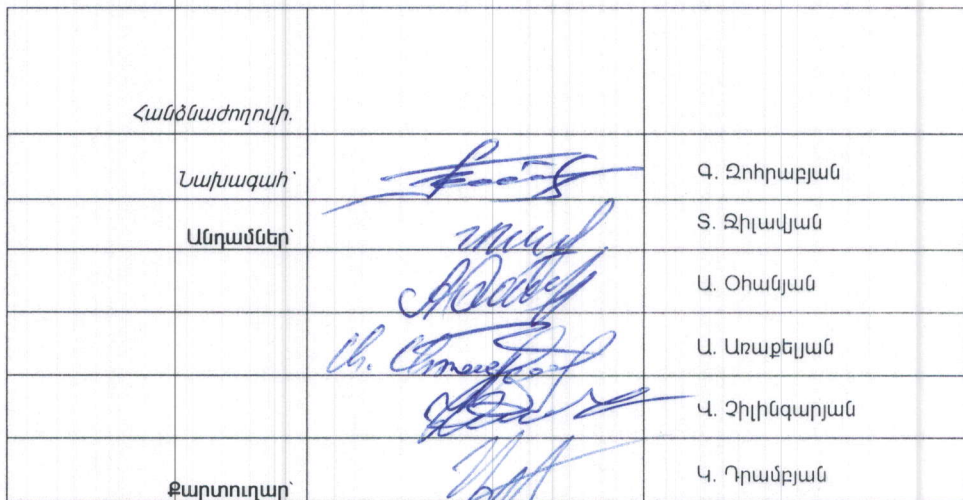 Հանձնաժողովի.
Նախագահ՝ Գ. Զոհրաբյան
Անդամներ՝ Տ. Ջիլավյան
Ա. Օհանյան
Ա. Առաքելյան
Վ. Չիլինգարյան
Քարտուղար՝ Կ. Դրամբյան